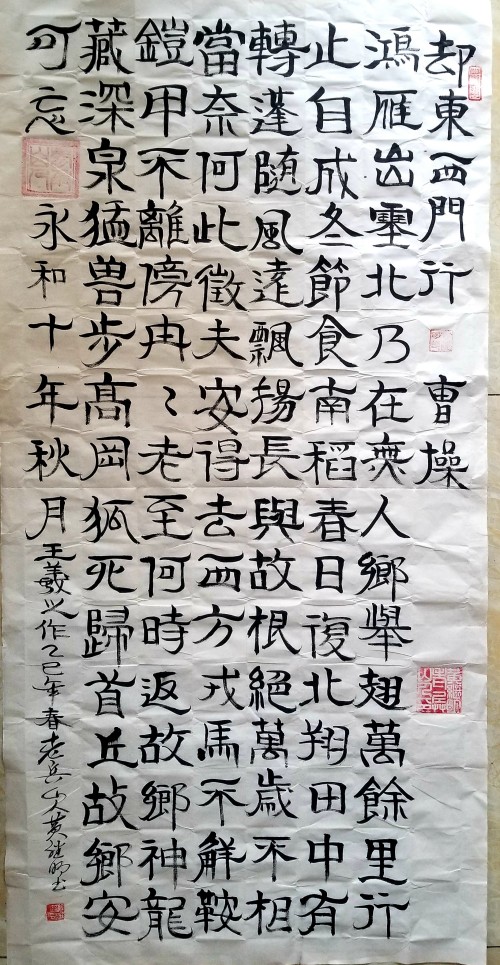 却東西門行 曹操
鴻雁出塞北乃在無人鄉舉翅萬餘里行
止自成冬節食南稻春日復北翔田中有
轉蓬隨風遠飄揚長與故根絕萬歲不相
當奈何此徵夫安得去西方戎馬不解鞍
鎧甲不離傍冉〻老至何時返故鄉神龍
藏深泉猛兽步高岡狐死歸首丘故鄉安
可忘 永和十年秋月王羲之作乙巳年春老兵山人黄明书